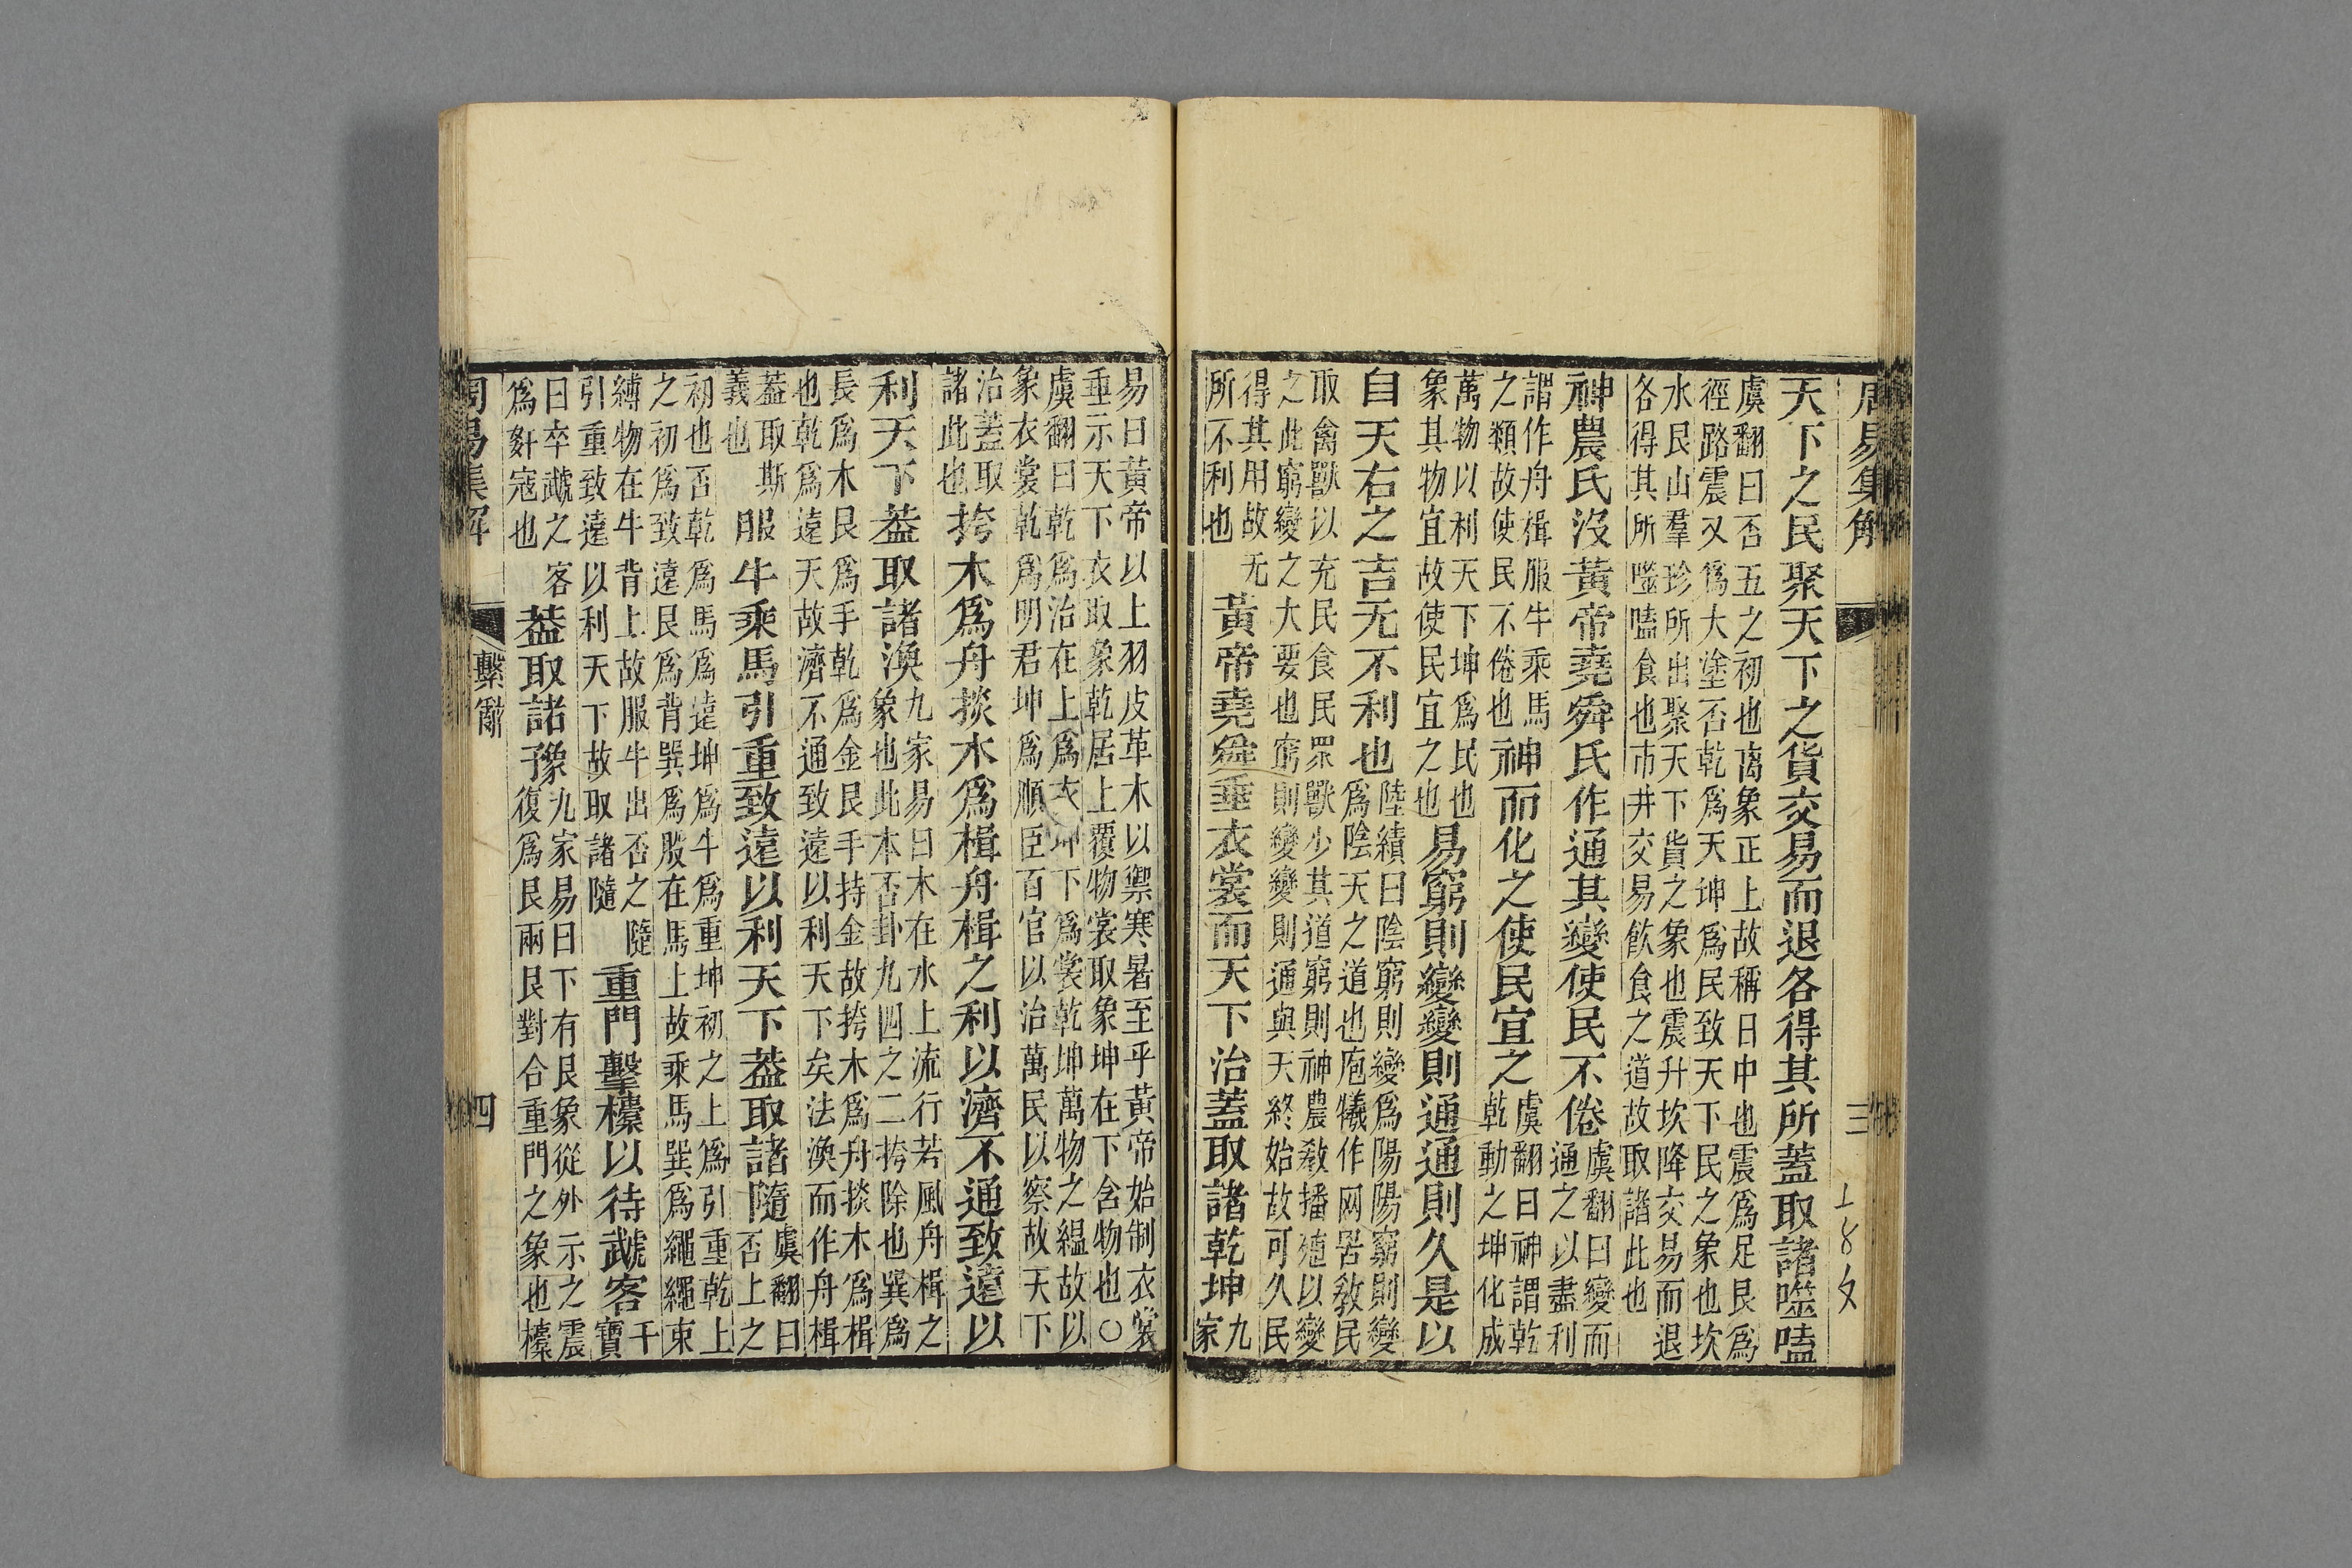 周易集解
三
上8文
天下之民聚天下之貨交易而退各得其所蓋取諸噬嗑
虞翻曰否五之初也离象正上故稱日中也震爲足艮爲
徑路震又爲大塗否乾爲天坤爲民致天下民之象也坎
水艮山羣珍所出聚天下貨之象也震升坎降交易而退
各得其所噬嗑食也市井交易飲食之道故取諸此也
神農氏沒黃帝堯舜氏作通其變使民不倦
虞翻曰變而
通之以盡利
謂作舟楫服牛乘馬
之類故使民不倦也
神而化之使民宜之
虞翻曰神謂乾
乾動之坤化成
萬物以利天下坤爲民也
象其物宜故使民宜之也
易窮則變變則通通則久是以
自天右之吉无不利也
陸績曰陰窮則變爲陽陽窮則變
爲陰天之道也庖犧作网罟敎民
取禽獸以充民食民眾獸少其道窮則神農敎播殖以變
之此窮變之大要也窮則變變則通與天終始故可久民
得其用故无
所不利也
黃帝堯舜垂衣裳而天下治蓋取諸乾坤
九
家
易曰黃帝以上羽皮革木以禦寒暑至乎黃帝始制衣裳
垂示天下衣取象乾居上覆物裳取象坤在下含物也〇
虞翻曰乾爲治在上爲衣坤下爲裳乾坤萬物之縕故以
象衣裳乾爲明君坤爲順臣百官以治萬民以察故天下
治蓋取
諸此也
挎木爲舟掞木爲楫舟楫之利以濟不通致遠以
利天下葢取諸渙
九家易曰木在水上流行若風舟楫之
象也此本否卦九四之二挎除也巽爲
長爲木艮爲手乾爲金艮手持金故挎木爲舟掞木爲楫
也乾爲遠天故濟不通致遠以利天下矣法渙而作舟楫
葢取斯
義也
服牛乘馬引重致遠以利天下葢取諸隨
虞翻曰
否上之
初也否乾爲馬爲遠坤爲牛爲重坤初之上爲引重乾上
之初爲致遠艮爲背巽爲股在馬上故乘馬巽爲繩繩束
縛物在牛背上故服牛出否之隨
引重致遠以利天下故取諸隨
重門擊㯓以待虣客
干
寶
曰卒虣之客
爲姧寇也
葢取諸豫
九家易曰下有艮象從外示之震
復爲艮兩艮對合重門之象也㯓
周易集解
繫辭
四